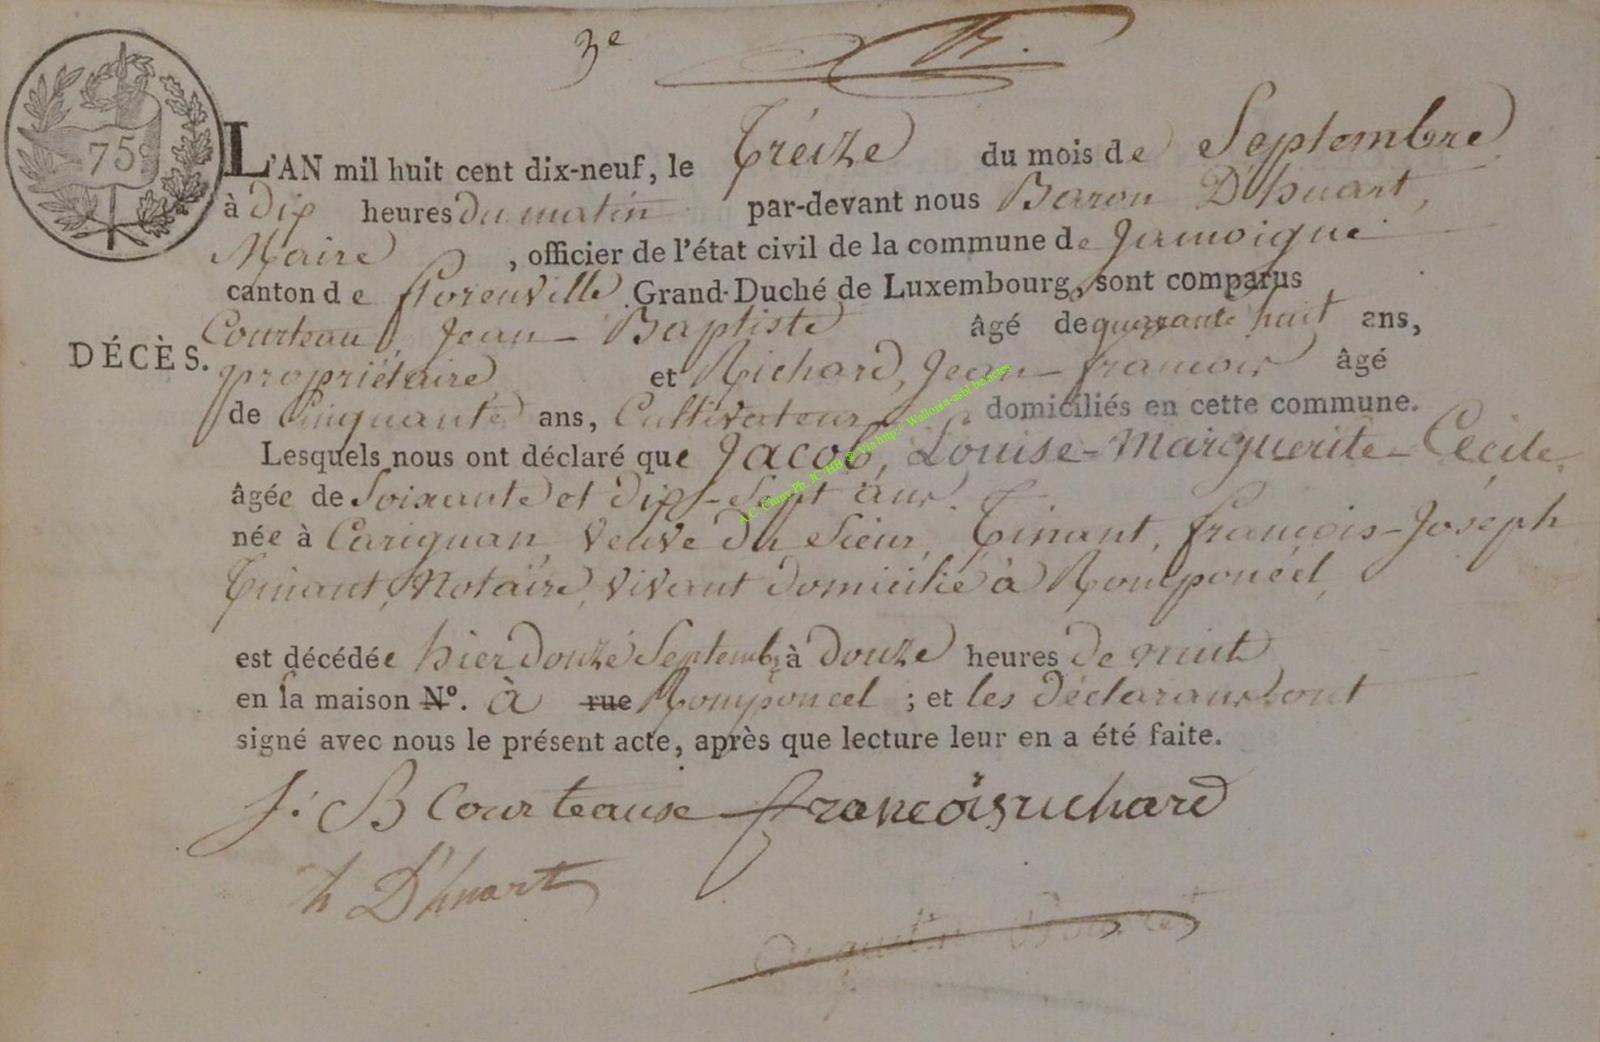 3e
75c
L'AN mil huit cent dix-neuf, le Tréize du mois de Septembre
à dix heures du matin par-devant nous Baron D'huart,
Maire, officier de l'état civil de la commune de Jamoigne
canton de florenville Grand-Duché de Luxembourg, sont comparus
Courteau, Jean-Baptiste âgé de quarante huit ans,
DÉCÈS.
propriétaire et Richard, Jean-francois âgé
de Cinquante ans, Cultivateur domiciliés en cette commune.
Lesquels nous ont déclaré que Jacob, Louise-Marguerite-Cecile
âgée de Soixante et dix-Sept ans.
née à Carignan, Veuve du Sieur, Tinant, francois-Joséph
Tinant, Notaire, vivant domicilié à Romponcel,
est décédée hier douzé Septemb. à douze heures de nuit
en la maison N°. à rue Romponcel ; et les déclarans ont
signé avec nous le présent acte, après que lecture leur en a été faite.
J. B Courteause francois richard
h D'huart
A.C Chiny Ph. JC/HB @ Via http:// Wallonia-asbl.be.actes